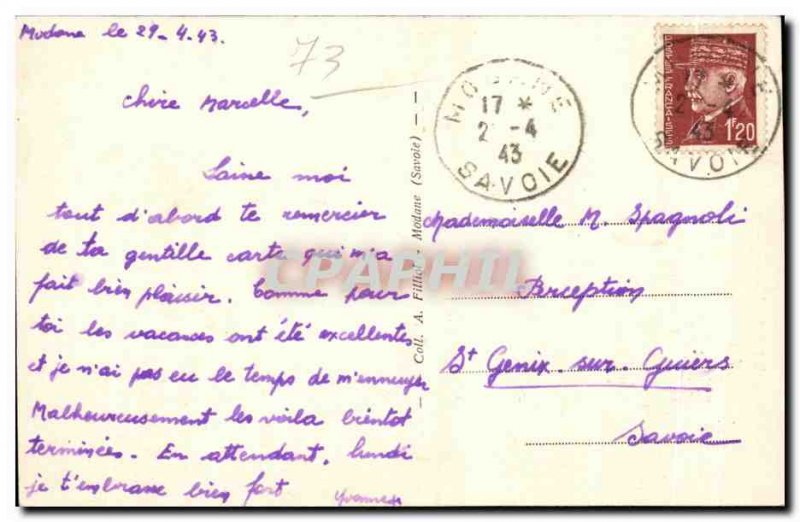 Modane le 29-4.43.
73
Chère Marcelle,
Laisse moi
tout d'abord te remercier
de ta gentille carte qui m'a
fait bien plaisir. Comme pour
toi les vacances ont été excellentes
et je n'ai pas eu le temps de m'ennuyer
Malheureusement les voila bientôt
terminées. En attendant, lundi
je t'embrasse bien fort
Yvonne
Coll. A. Modane (Savoie)
MODANE
17 *
2 -4
43
SAVOIE
POSTES FRANÇAISES
1F20
17 *
2 -4
43
SAVOIE
Mademoiselle M. Spagnoli
Perception
St Genix-sur-Guiers
Savoie
CPAPHIL